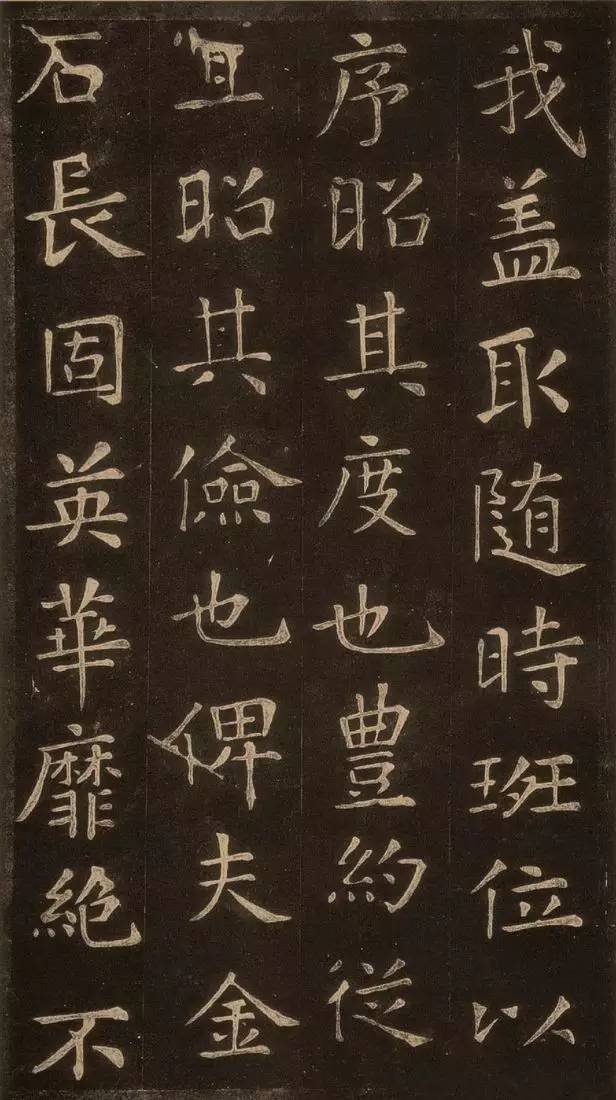 我盖取随時班位以
序昭其度也豊約從
宜昭其儉也俾夫金
石長固英華靡絶不